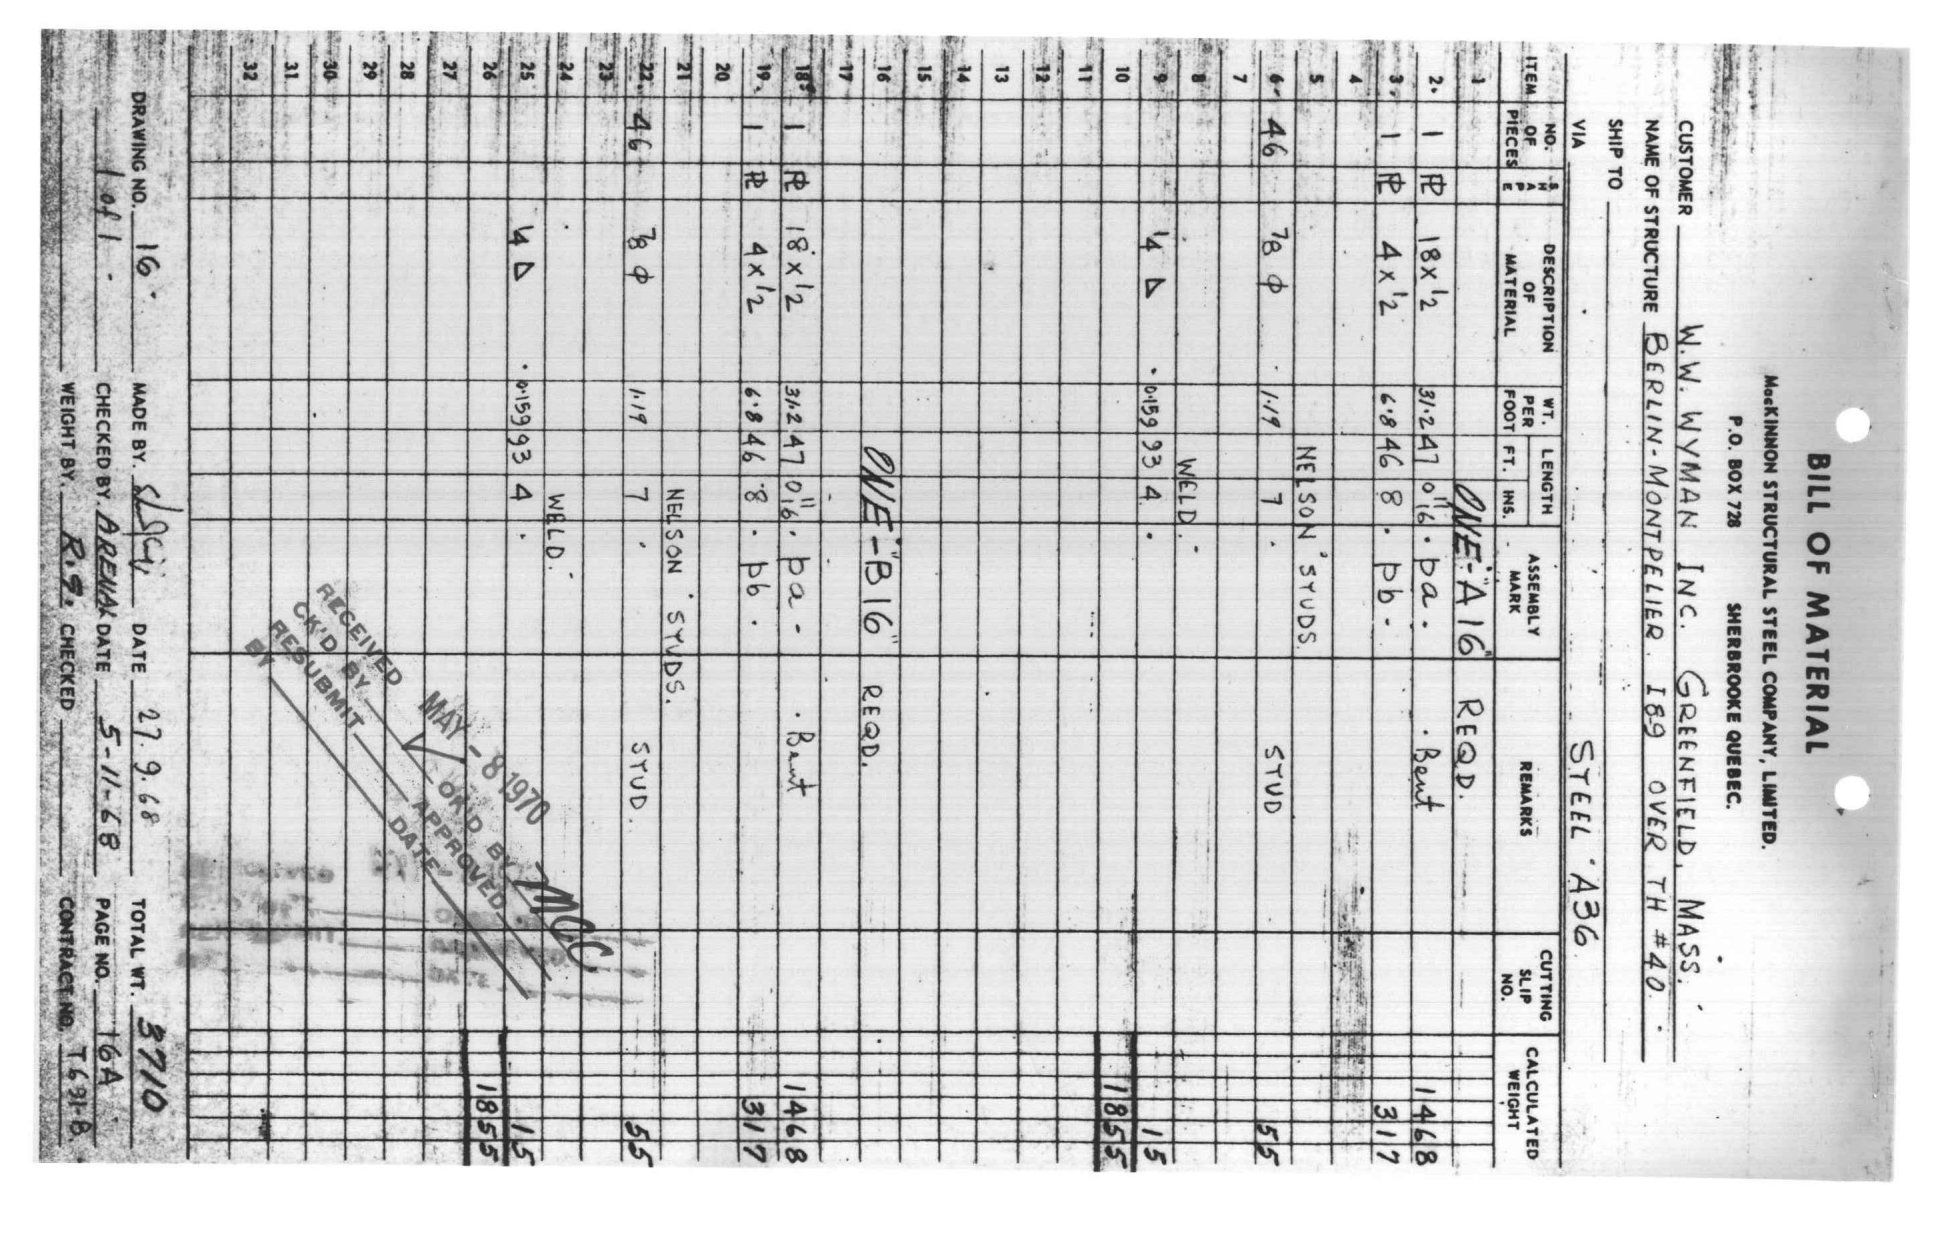 BILL OF MATERIAL
MacKINNON STRUCTURAL STEEL COMPANY, LIMITED.
P.O. BOX 728 SHERBROOKE QUEBEC.
CUSTOMER W.W. WYMAN INC. GREENFIELD, MASS.
NAME OF STRUCTURE BERLIN-MONTPELIER I89 OVER TH #40.
SHIP TO
VIA STEEL A36
ITEM NO. OF PIECES SHAPE DESCRIPTION OF MATERIAL WT. PER FOOT LENGTH FT. INS. ASSEMBLY MARK REMARKS CUTTING SLIP NO. CALCULATED WEIGHT
1 ONE-"A16" REQD.
2 1 PL 18 x 1/2 31.2 47 0 11/16 pa Bent 1468
3 1 PL 4 x 1/2 6.8 46 8 pb 317
4
5 NELSON STUDS
6 46 7/8 Φ 1.19 7 STUD 55
7
8 WELD
9 1/4 Δ 0.159 93 4 15
10 1855
11
12
13
14
15
16 ONE-"B16" REQD.
17
18 1 PL 18 x 1/2 31.2 47 0 11/16 pa Bent 1468
19 1 PL 4 x 1/2 6.8 46 8 pb 317
20
21 NELSON STUDS.
22 46 7/8 Φ 1.19 7 STUD 55
23
24 WELD
25 1/4 Δ 0.159 93 4 15
26 1855
27
28
29
30
31
32
RECEIVED MAY-8 1970
CK'D BY OK'D BY MCC
RESUBMIT APPROVED
BY DATE
DRAWING NO. 16 MADE BY. DATE 27.9.68 TOTAL WT. 3710
1 of 1 CHECKED BY. ARENAL DATE 5-11-68 PAGE NO. 16A
WEIGHT BY. CHECKED CONTRACT NO. T691-B